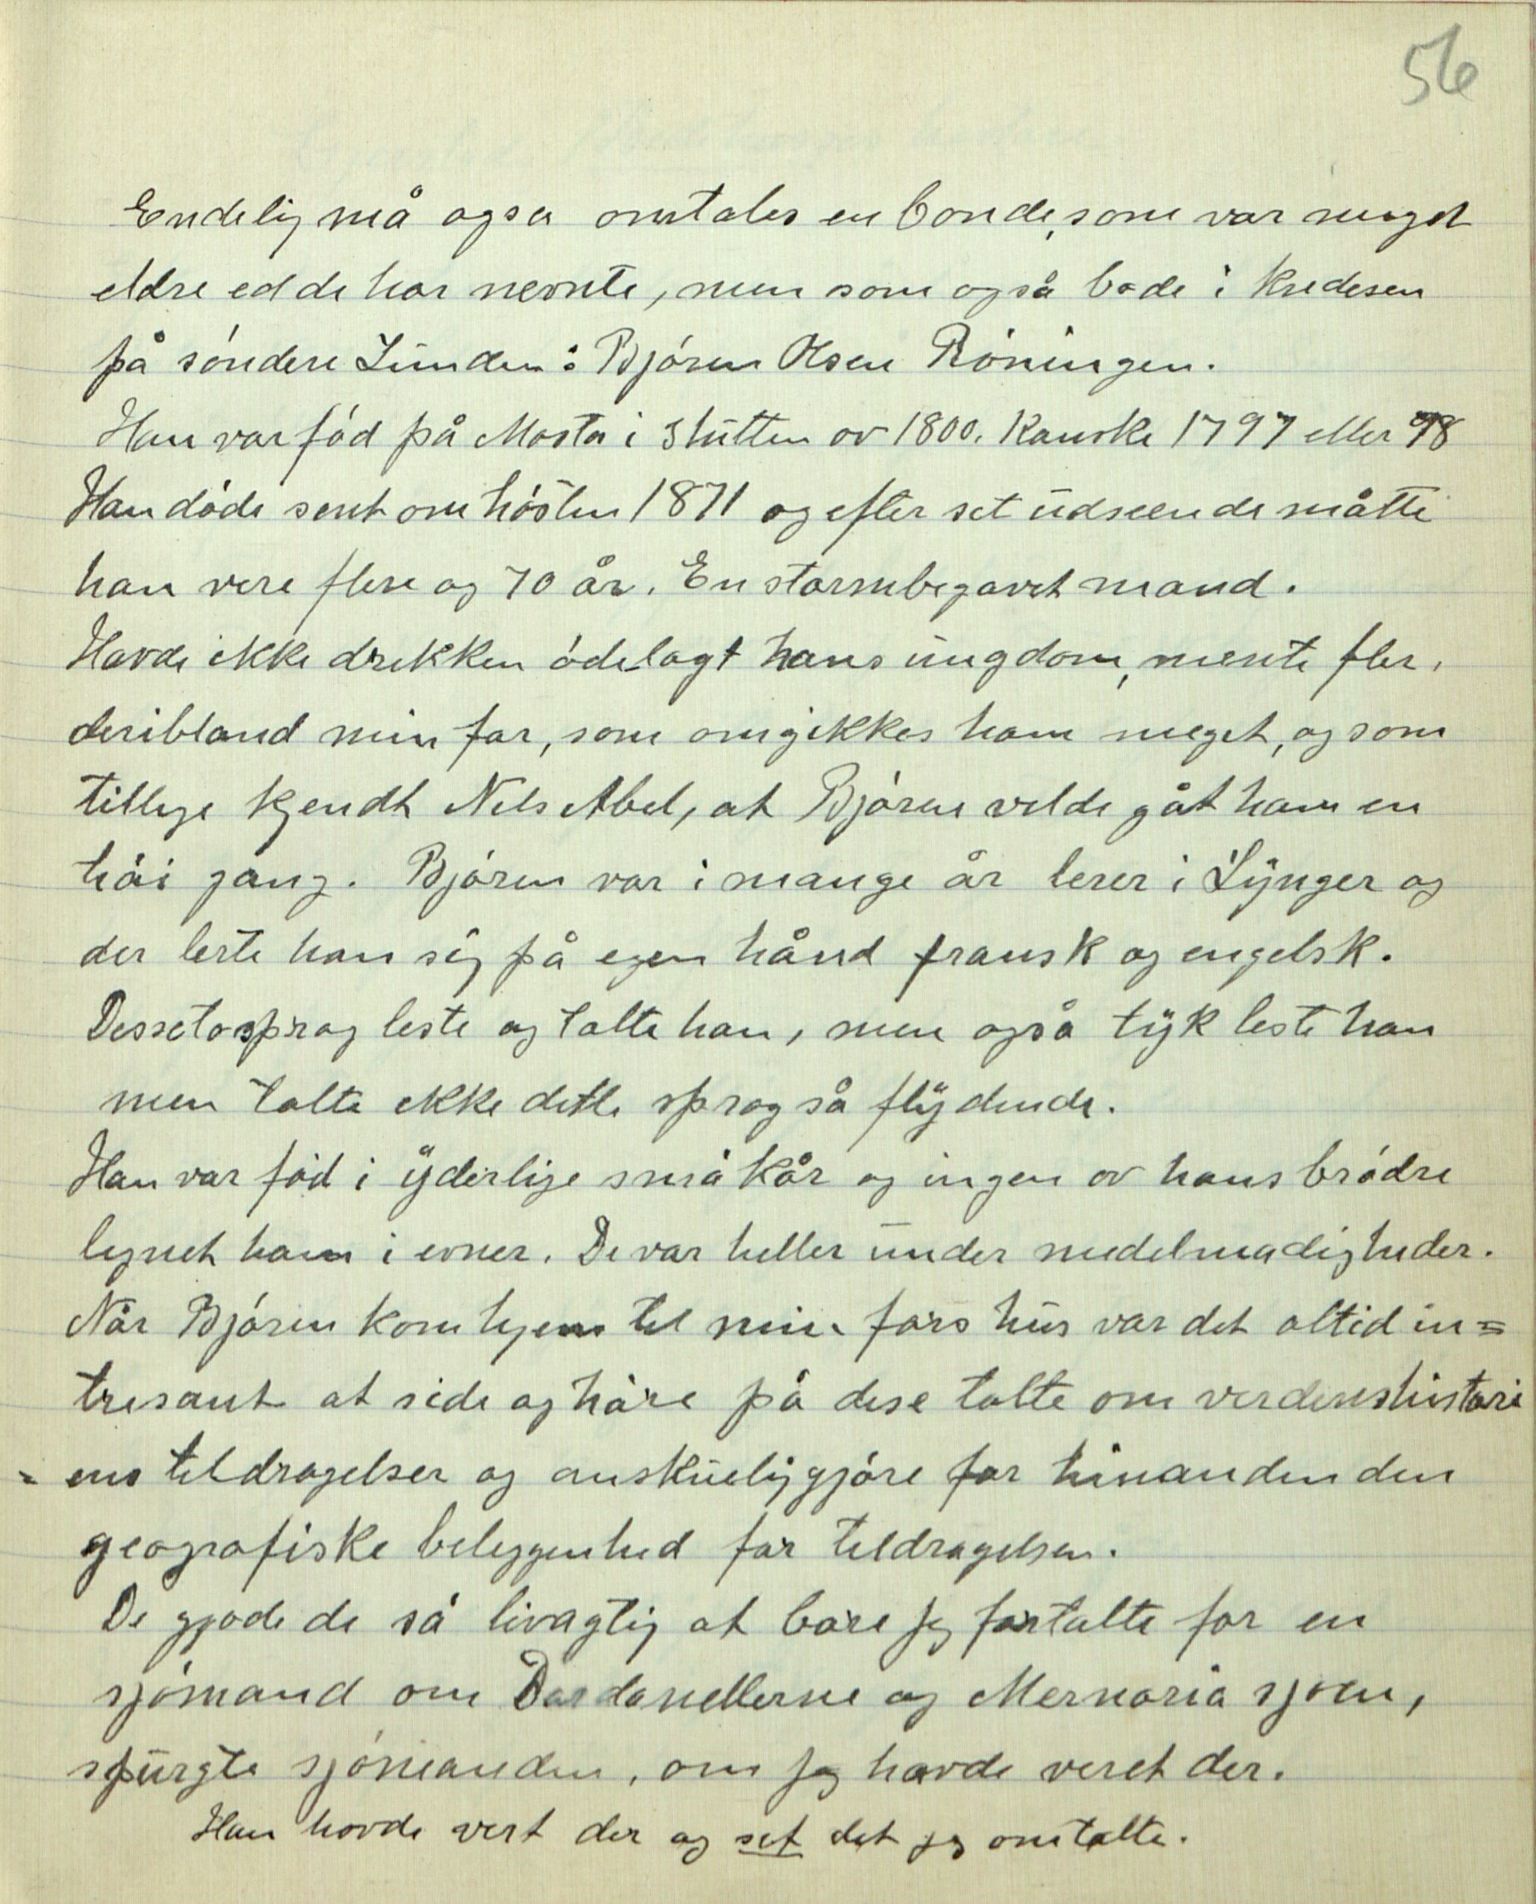 56
Endelig må ogsa omtales en bonde, som var meget
eldre ed de har nevnte, men som også bode i kredesen
på söndere Lunden: Björen Olsen Röningen.
Han var föd på Mosta i Slutten av 1800. Kanske 1797 eller 98
Han döde sent om hösten 1871 og efter set udseende måtte
han vere flere og 70 år. En stormbegavet mand.
Havde ikke drikken ödelagt hans ungdom, mente fler,
deribland min far, som omgikkes ham meget, og som
tillige kjendt Nils Abel, at Björen vilde gåt ham en
höi gang. Björen var i mange år lerer i Lynger og
der lerte han sig på egen hånd fransk og engelsk.
Desse to sprog leste og talte han, men også tyk leste han
men talte ikke dette sprog så flydende.
Han var föd i yderlige små kår og ingen av hans brödre
lignet ham i evner. De var heller under medelmadigheder.
Når Björen kom hjem til min fars hus var det altid in=
tresant at side og höre på dese talte om verdenshistori
= ens tildragelser og anskueliggjöre for hinanden den
geografiske beliggenhed for tildragelsen.
De gjode de så livagtig at bare jeg fortalte for en
sjömand om Dardanellerne og Mermaria sjoen,
spurgte sjömanden, om jeg havde veret der.
Han hovde vert der og set det jeg omtalte.